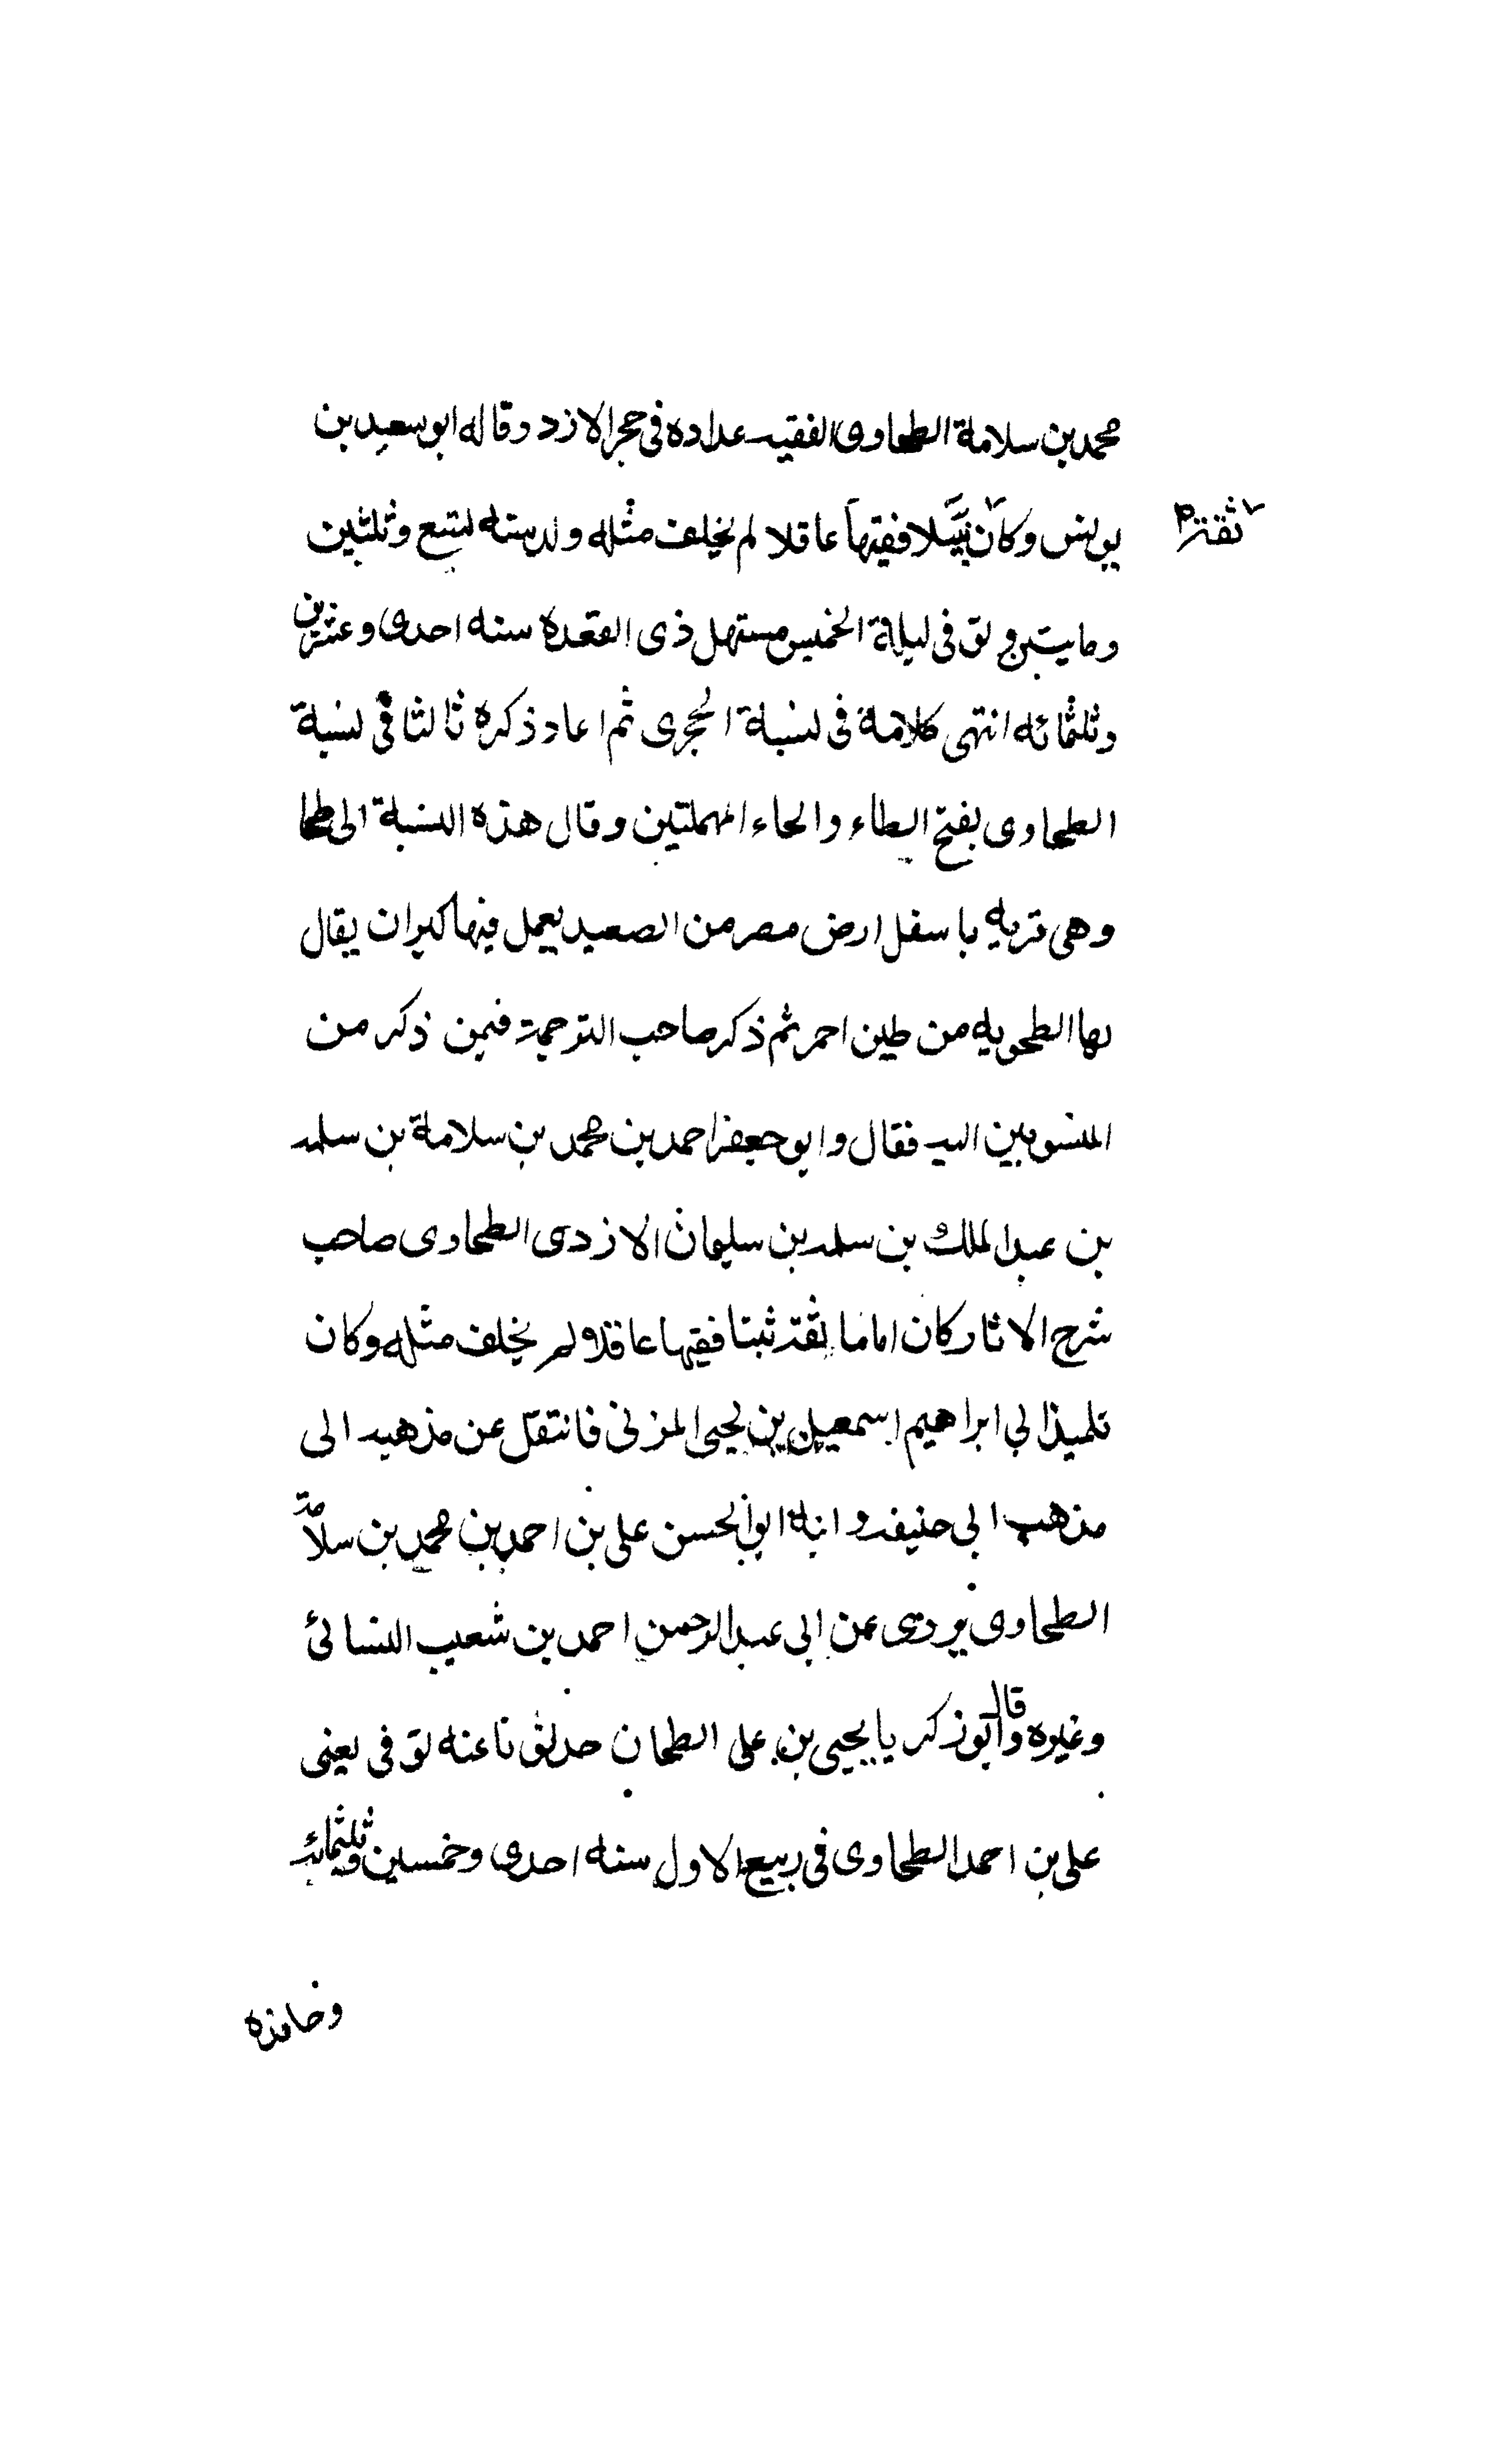 محمد بن سلامة الطحاوى الفقيه عداده فى حجر الازد وقاله ابو سعيد بن
يونس وكان نبيلا فقيها عاقلا لم يخلف مثله ولد سنه تسع وثلثين
ثقة
ومايتين وتوفى ليلة الخميس مستهل ذى القعده سنه احدى وعشرين
وثلثمائه انتهى كلامه فى نسبة الحجرى ثم اعاد ذكره ثالثا فى نسبة
الطحاوى بفتح الطاء والحاء المهملتين وقال هذه النسبة الى طحا
وهى قريه باسفل ارض مصر من الصعيد يعمل فيها كيزان يقال
لها الطحويه من طين احمر ثم ذكر صاحب الترجمة فيمن ذكر من
المنسوبين اليه فقال وابو جعفر احمد بن محمد بن سلامة بن سلمه
بن عبد الملك بن سلمه بن سليمان الازدى الطحاوى صاحب
شرح الاثار كان اماما ثقة ثبتا فقيها عاقلا ولم يخلف مثله وكان
تلميذ ابي ابراهيم اسمعيل بن يحيى المزنى فانتقل عن مذهبه الى
مذهب ابى حنيفه وابنه ابو الحسن على بن احمد بن محمد بن سلامة
الطحاوى يروى عن ابى عبد الرحمن احمد بن شعيب النسائى
وغيره وقال ابو زكريا يحيى بن على الطحان حدثونا عنه توفى يعنى
على بن احمد الطحاوى فى ربيع الاول سنه احدى وخمسين وثلثمائه